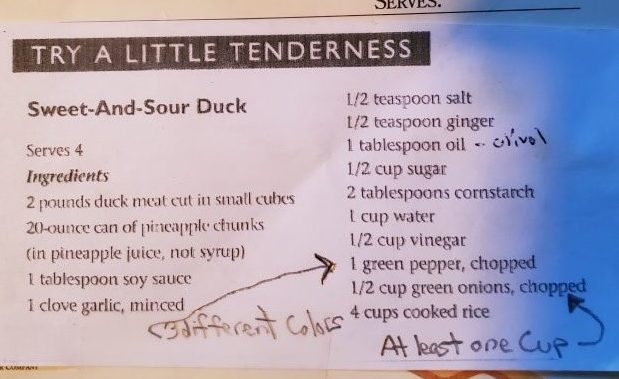 SERVES:
TRY A LITTLE TENDERNESS
Sweet-And-Sour Duck
Serves 4
Ingredients
2 pounds duck meat cut in small cubes
20-ounce can of pineapple chunks
(in pineapple juice, not syrup)
1 tablespoon soy sauce
1 clove garlic, minced
1/2 teaspoon salt
1/2 teaspoon ginger
1 tablespoon oil --
1/2 cup sugar
2 tablespoons cornstarch
1 cup water
1/2 cup vinegar
1 green pepper, chopped
1/2 cup green onions, chopped
4 cups cooked rice
3 different Colors
At least one Cup
COMPANY